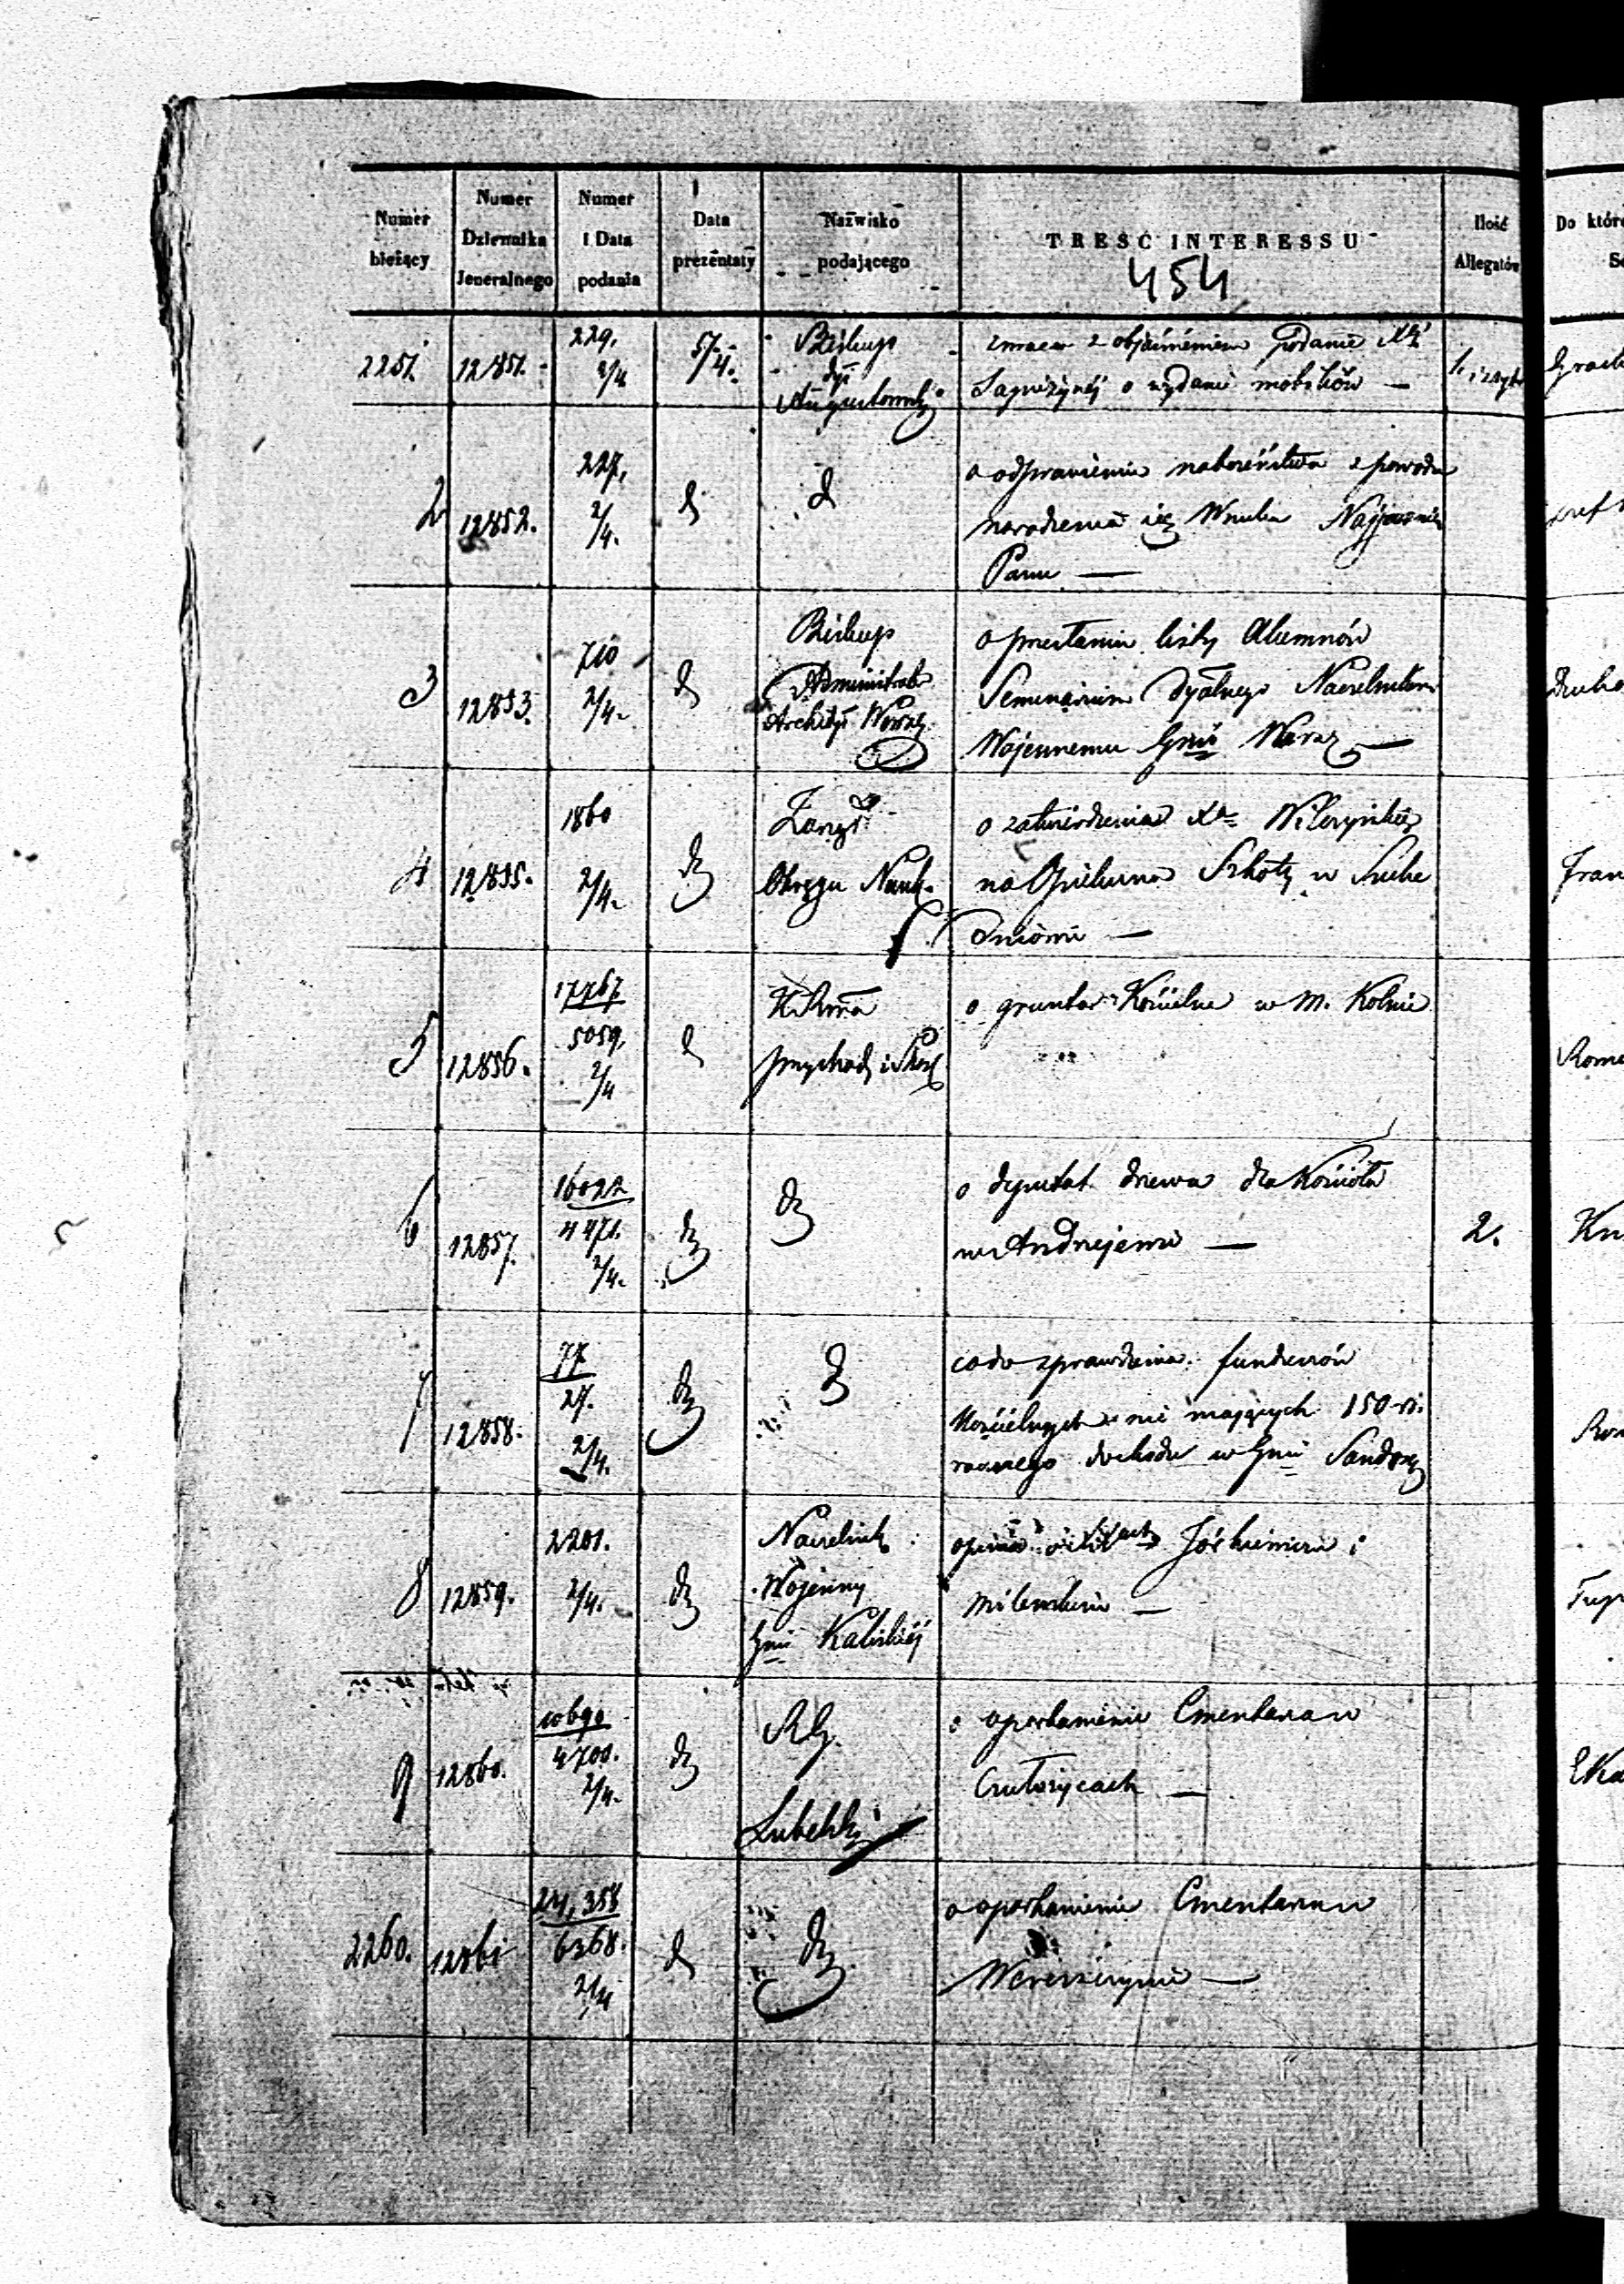 Numer bieżący
Numer Dziennika Jeneralnego
Numer i Data podania
Data prezentaty
Nazwisko podającego
TREŚĆ INTERESSU
Ilość Allegatów
Do któr
454
2251. 12851. 229, 2/4 5/4. Biskup
dyi
Augustowsky
zwraca z objaśnieniem podanie
o wydanie mobiliów —
2 12852. 227, 2/4. d d
o odprawienie nabożeństwa z powodu
narodzenia się Wnuka Najjasniej
Panu —
3 12853. 710 2/4. d Biskup
Administrator
Archidyi Warsz.
o przesłaniu listy Alumnów
Seminarium Dyalnego Naczelnikowi
Wojennemu Gnii Warsz —
4 12855. 1860 2/4. d Zarząd
Okręgu Nauk.
o zatwierdzenie Xa
na Opiekuna Szkoły w Suche
dniowie —
5 12856. 17767 5059, 2/4 d K. Rzwa
przychod i Skar
o grunta Kościelne w m. Kolnie
6 12857. 16022 4471. 2/4. d d
o deputat drzewa dla Kościoła
w Andrzejewie —
2.
7 12858. 77 27. 2/4. d d
co do sprawdzenia funduszów
Kościelnych nie mających 150 rs.
rocznego dochodu w Gnii Sandom
8 12859. 2201. 2/4. d Naczelnik
Wojenny
Gnii Kaliskiéj
opinia o i
—
9 12860. 10690 4700. 2/4. d RG.
Lubelski
o oparkanienie Cmentarza w
—
2260. 12861 24,358 6368. 2/4 d d
o oparkanienie Cmentarza w
Wereszczynie —